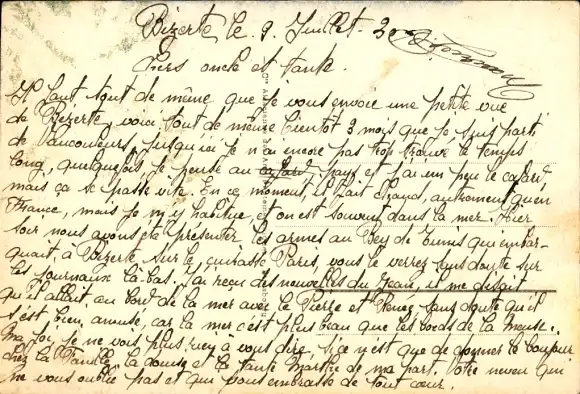 Bizerte le 9 Juillet - 30
Chers oncle et tante.
Il faut tout de même que je vous envoie une petite vue
de Bizerte, voici tout de même bientôt 3 mois que je suis parti
de Vaucouleurs, jusqu'ici je n'ai encore pas trop trouvé le temps
long, quelquefois je pense au pays et j'ai un peu le cafard,
mais ça se passe vite. En ce moment, il fait chaud, autrement qu'en
France, mais je m'y habitue, et on est souvent dans la mer. Hier
soir nous avons été présenter les armes au Bey de Tunis qui embar-
quait à Bizerte sur le cuirassé Paris, vous le verrez sans doute sur
les journaux là-bas. J'ai reçu des nouvelles du Jean, il me disait
qu'il allait au bord de la mer avec le Pierre et René, sans doute qu'il
s'est bien amusé, car la mer c'est plus beau que les bords de la Meuse.
Ma foi, je ne vois plus rien à vous dire, si ce n'est que de donner le bonjour
chez la et la tante Marthe de ma part. Votre neveu qui
ne vous oublie pas et qui vous embrasse de tout cœur.